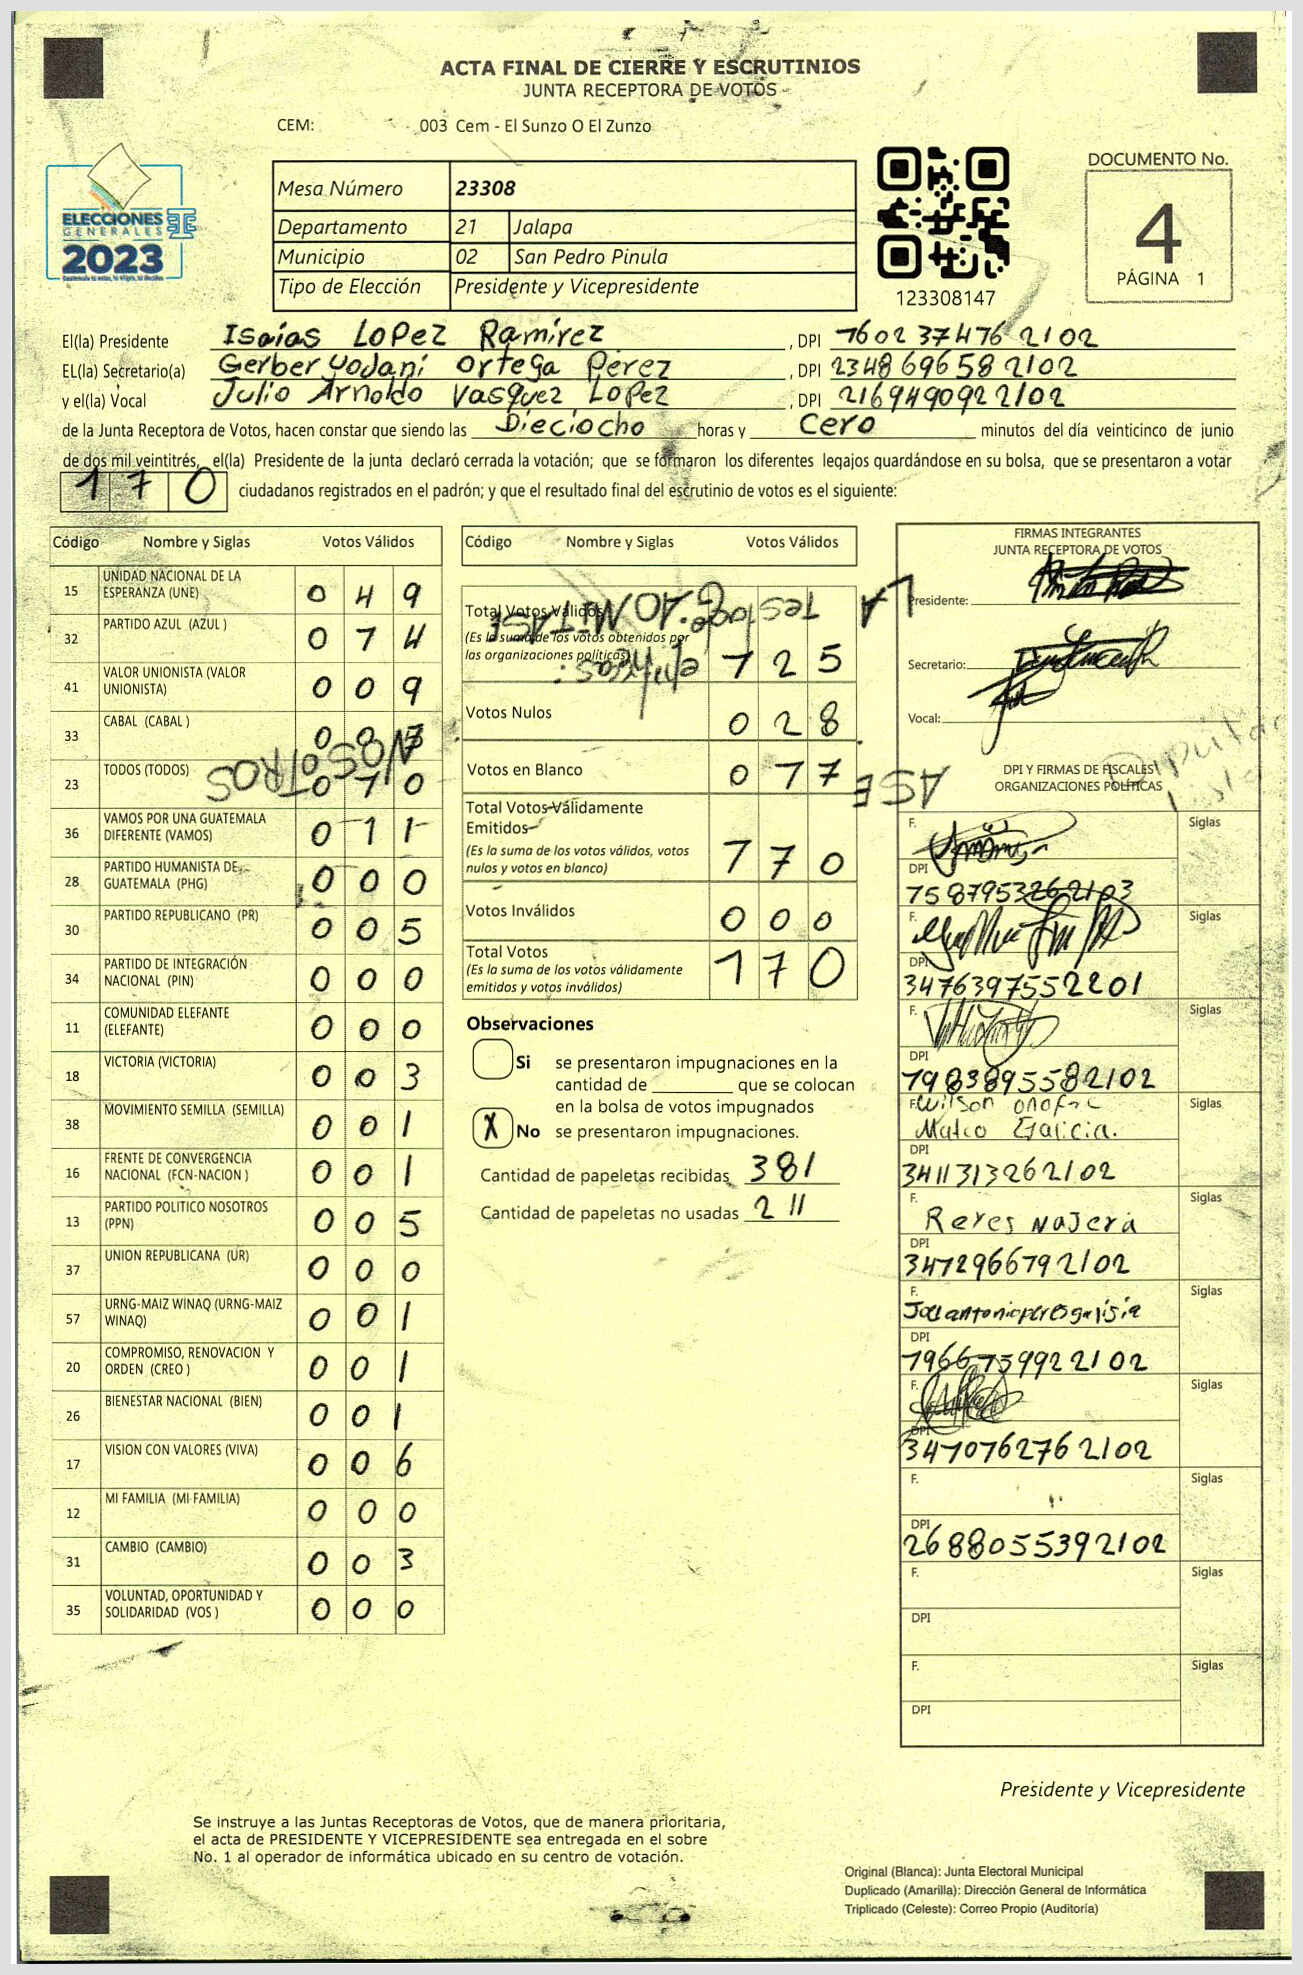 ACTA FINAL DE CIERRE Y ESCRUTINIOS
JUNTA RECEPTORA DE VOTOS
CEM: 003 Cem - El Sunzo O El Zunzo
ELECCIONES
GENERALES
2023
Mesa Número 23308
Departamento 21 Jalapa
Municipio 02 San Pedro Pinula
Tipo de Elección Presidente y Vicepresidente
123308147
DOCUMENTO No.
4
PÁGINA 1
El(la) Presidente Isaías LoPez Ramírez , DPI 1602374762102
EL(la) Secretario(a) Gerber Yodani Ortega Pérez , DPI 2348696582102
y el(la) Vocal Julio Arnoldo Vasquez LoPez , DPI 2169490922102
de la Junta Receptora de Votos, hacen constar que siendo las Dieciocho horas y Cero minutos del día veinticinco de junio
de dos mil veintitrés, el(la) Presidente de la junta declaró cerrada la votación; que se formaron los diferentes legajos guardándose en su bolsa, que se presentaron a votar
170 ciudadanos registrados en el padrón; y que el resultado final del escrutinio de votos es el siguiente:
Código Nombre y Siglas Votos Válidos
15 UNIDAD NACIONAL DE LA ESPERANZA (UNE) 0 4 9
32 PARTIDO AZUL (AZUL ) 0 7 4
41 VALOR UNIONISTA (VALOR UNIONISTA) 0 0 9
33 CABAL (CABAL ) 0 0
23 TODOS (TODOS) 0 1 0
NOSOTROS
36 VAMOS POR UNA GUATEMALA DIFERENTE (VAMOS) 0 1 1
28 PARTIDO HUMANISTA DE GUATEMALA (PHG) 0 0 0
30 PARTIDO REPUBLICANO (PR) 0 0 5
34 PARTIDO DE INTEGRACIÓN NACIONAL (PIN) 0 0 0
11 COMUNIDAD ELEFANTE (ELEFANTE) 0 0 0
18 VICTORIA (VICTORIA) 0 0 3
38 MOVIMIENTO SEMILLA (SEMILLA) 0 0 1
16 FRENTE DE CONVERGENCIA NACIONAL (FCN-NACION ) 0 0 1
13 PARTIDO POLITICO NOSOTROS (PPN) 0 0 5
37 UNION REPUBLICANA (UR) 0 0 0
57 URNG-MAIZ WINAQ (URNG-MAIZ WINAQ) 0 0 1
20 COMPROMISO, RENOVACION Y ORDEN (CREO ) 0 0 1
26 BIENESTAR NACIONAL (BIEN) 0 0 1
17 VISION CON VALORES (VIVA) 0 0 6
12 MI FAMILIA (MI FAMILIA) 0 0 0
31 CAMBIO (CAMBIO) 0 0 3
35 VOLUNTAD, OPORTUNIDAD Y SOLIDARIDAD (VOS ) 0 0 0
Código Nombre y Siglas Votos Válidos
Total Votos Válidos
(Es la suma de los votos obtenidos por
las organizaciones políticas) 1 2 5
Testado: OMITASE
Votos Nulos 0 2 8
Votos en Blanco 0 1 7
Total Votos Válidamente
Emitidos
(Es la suma de los votos válidos, votos
nulos y votos en blanco) 1 7 0
Votos Inválidos 0 0 0
Total Votos
(Es la suma de los votos válidamente
emitidos y votos inválidos) 1 7 0
Observaciones
Si se presentaron impugnaciones en la
cantidad de que se colocan
en la bolsa de votos impugnados
X No se presentaron impugnaciones.
Cantidad de papeletas recibidas 381
Cantidad de papeletas no usadas 211
FIRMAS INTEGRANTES
JUNTA RECEPTORA DE VOTOS
Presidente:
Secretario:
Vocal:
DPI Y FIRMAS DE FISCALES
ORGANIZACIONES POLÍTICAS
F. Siglas
DPI
1587953262103
F. Siglas
DPI
3476397552201
F. Siglas
DPI
1983895582102
F. Wilson Onofre Siglas
Mateo Galicia.
DPI
3411313262102
F. Siglas
Reyes Najera
DPI
3472966792102
F. Siglas
DPI
1966759922102
F. Siglas
DPI
3470762762102
F. Siglas
DPI
2688055392102
F. Siglas
DPI
F. Siglas
DPI
Presidente y Vicepresidente
Se instruye a las Juntas Receptoras de Votos, que de manera prioritaria,
el acta de PRESIDENTE Y VICEPRESIDENTE sea entregada en el sobre
No. 1 al operador de informática ubicado en su centro de votación.
Original (Blanca): Junta Electoral Municipal
Duplicado (Amarilla): Dirección General de Informática
Triplicado (Celeste): Correo Propio (Auditoría)